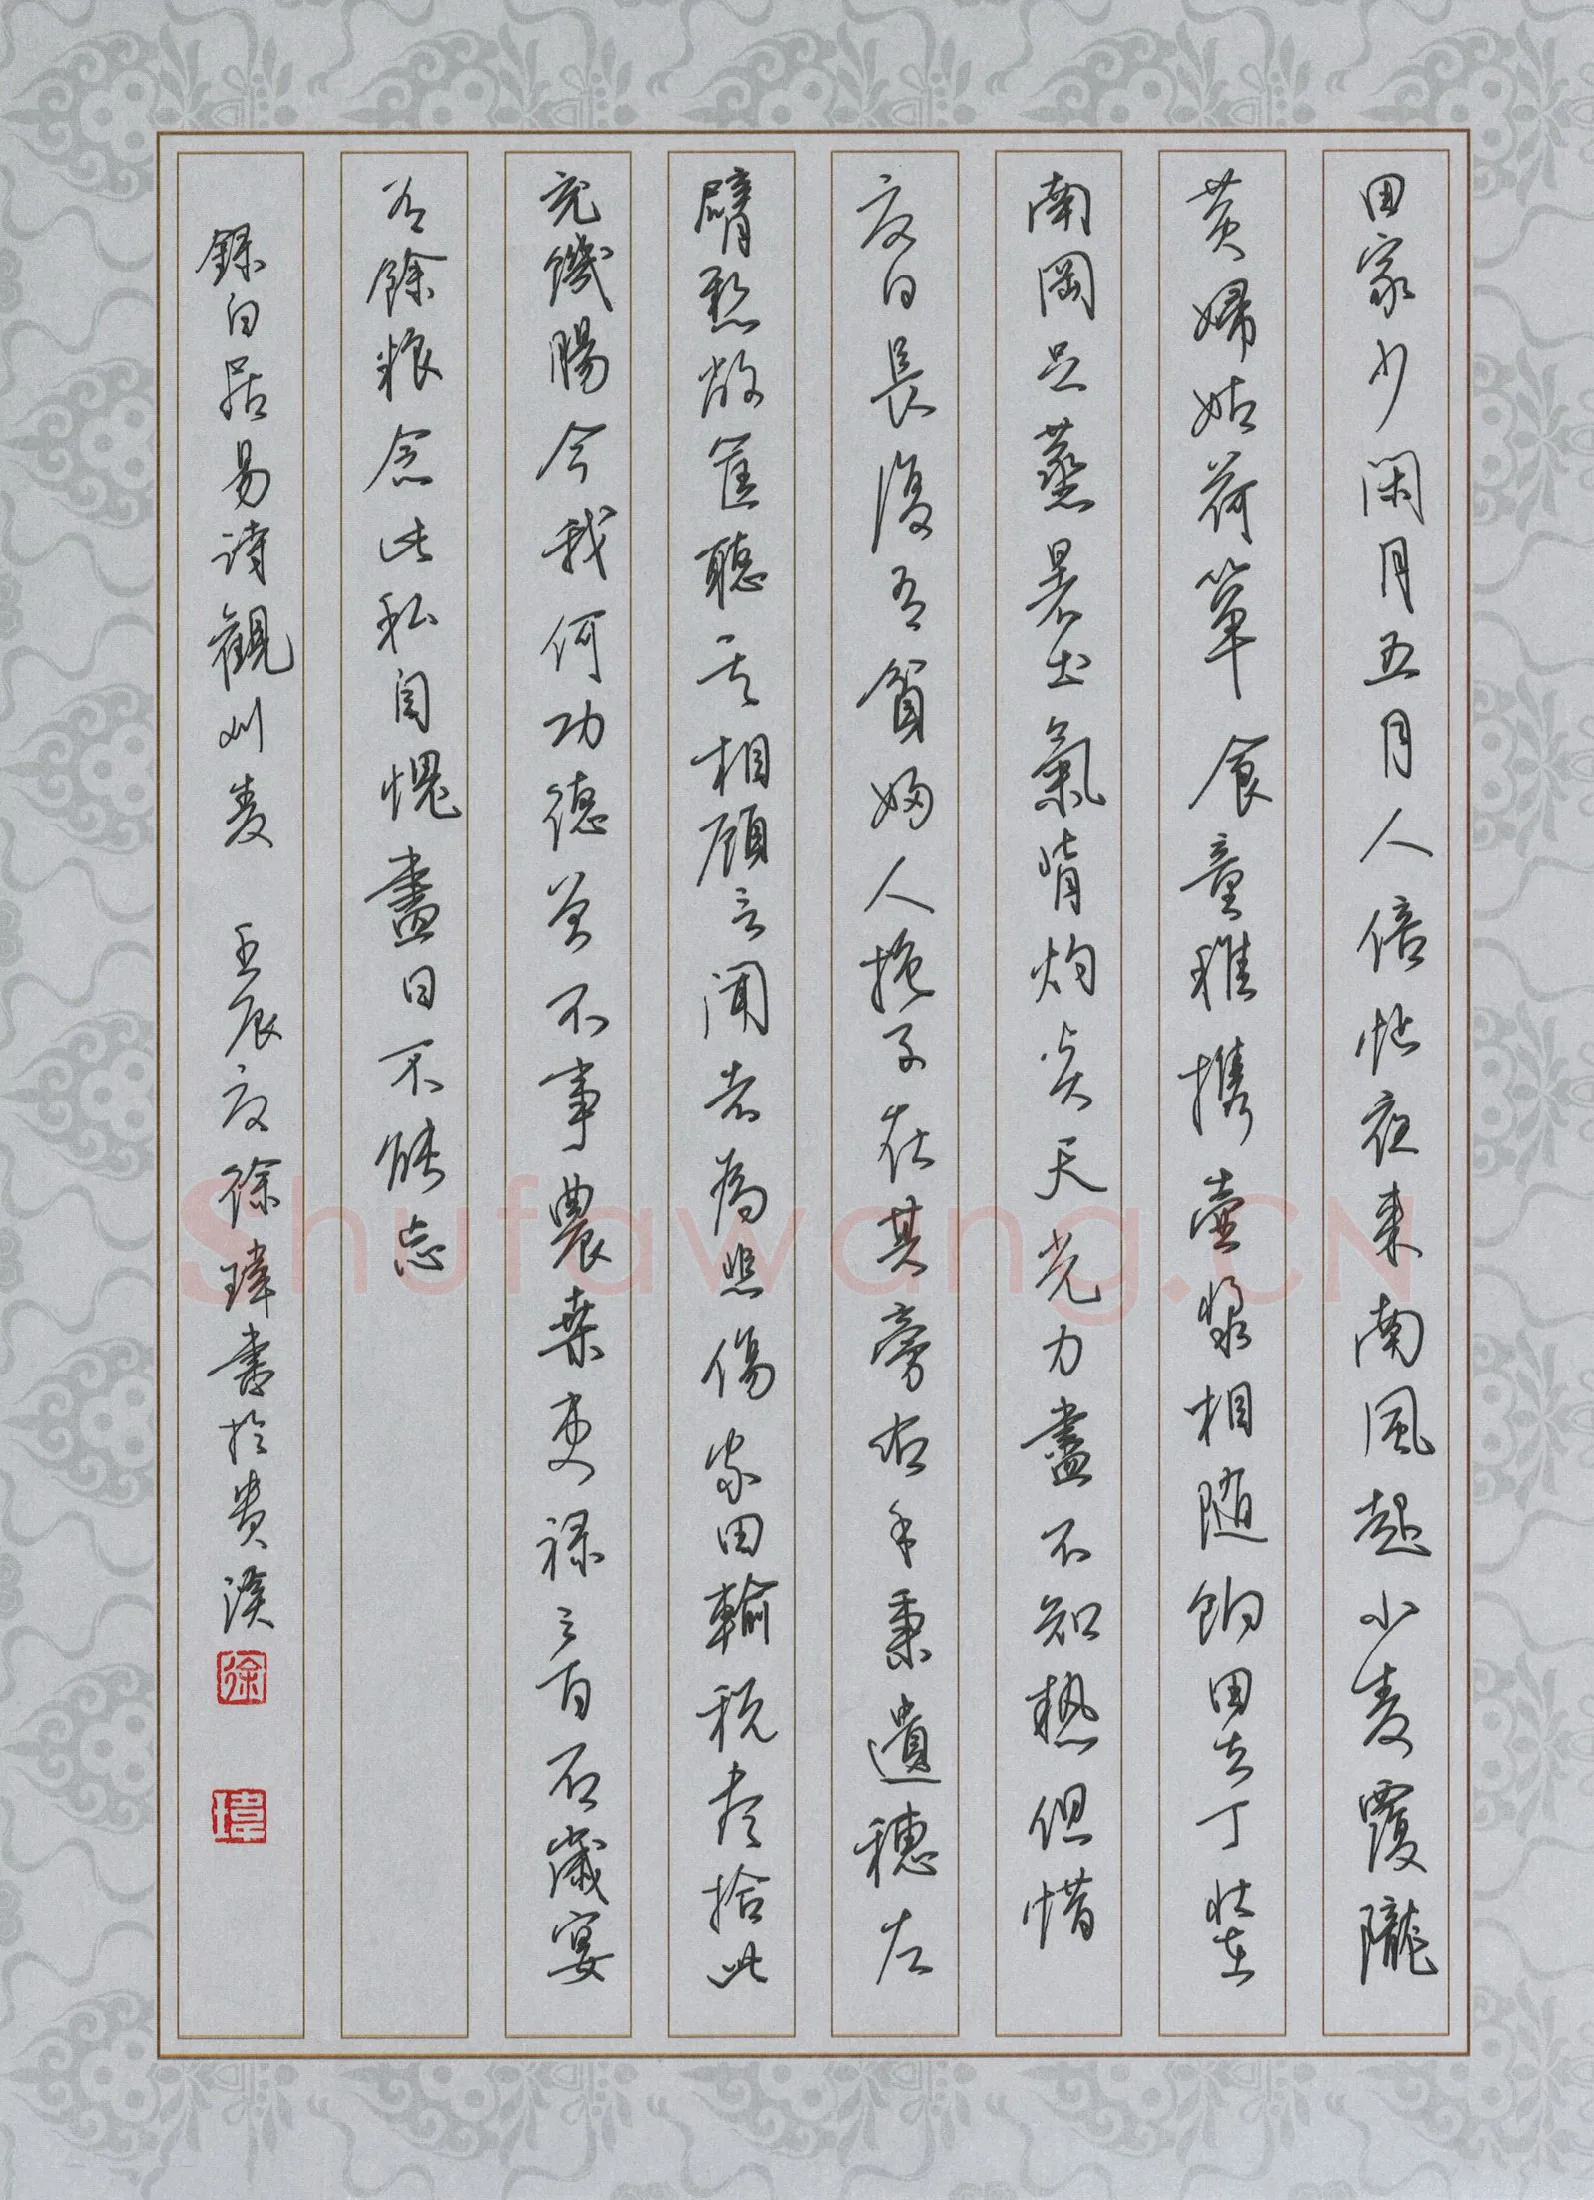 田家少閑月五月人倍忙夜来南風起小麦覆隴
黄婦姑荷箪食童稚携壺漿相随餉田去丁壮在
南岡足蒸暑土氣背灼炎天光力盡不知熱但惜
夏日長復有貧婦人抱子在其旁右手秉遺穗左
臂懸敝筐聽其相顧言聞者為悲傷家田輸税尽拾此
充饑腸今我何功德曾不事農桑吏禄三百石歲宴
有餘粮念此私自愧盡日不能忘
録白居易詩觀刈麦 壬辰夏徐瑋書於贵溪
徐
瑋
Shufawang.CN